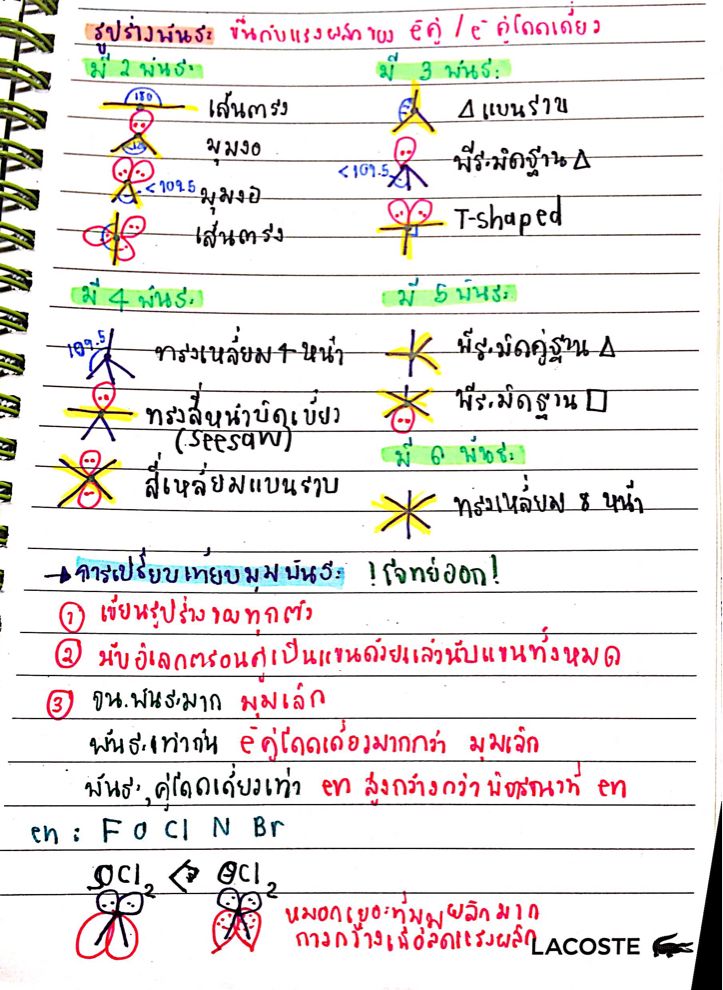 รูปร่างพันธะ ขึ้นกับแรงผลักของ e⁻คู่ / e⁻ คู่โดดเดี่ยว
มี 2 พันธะ
180 เส้นตรง
มุมงอ
<109.5 มุมงอ
เส้นตรง
มี 3 พันธะ
△ แบนราบ
<109.5 พีระมิดฐาน △
T-shaped
มี 4 พันธะ
109.5 ทรงเหลี่ยม 4 หน้า
ทรงสี่หน้าบิดเบี้ยว
(seesaw)
สี่เหลี่ยมแบนราบ
มี 5 พันธะ
พีระมิดคู่ฐาน △
พีระมิดฐาน □
มี 6 พันธะ
ทรงเหลี่ยม 8 หน้า
→ การเปรียบเทียบมุมพันธะ !โจทย์ออก!
① เขียนรูปร่างของทุกตัว
② นับอิเลกตรอนคู่เป็นแขนด้วยแล้วนับแขนทั้งหมด
③ จน.พันธะมาก มุมเล็ก
พันธะเท่ากัน e⁻คู่โดดเดี่ยวมากกว่า มุมเล็ก
พันธะ, คู่โดดเดี่ยวเท่า en สูงกว้างกว่า พิจารณาที่ en
en : F O Cl N Br
SCl₂ <> OCl₂
หมอกเยอะที่มุมผลักมาก
กางกว้างเพื่อลดแรงผลัก
LACOSTE